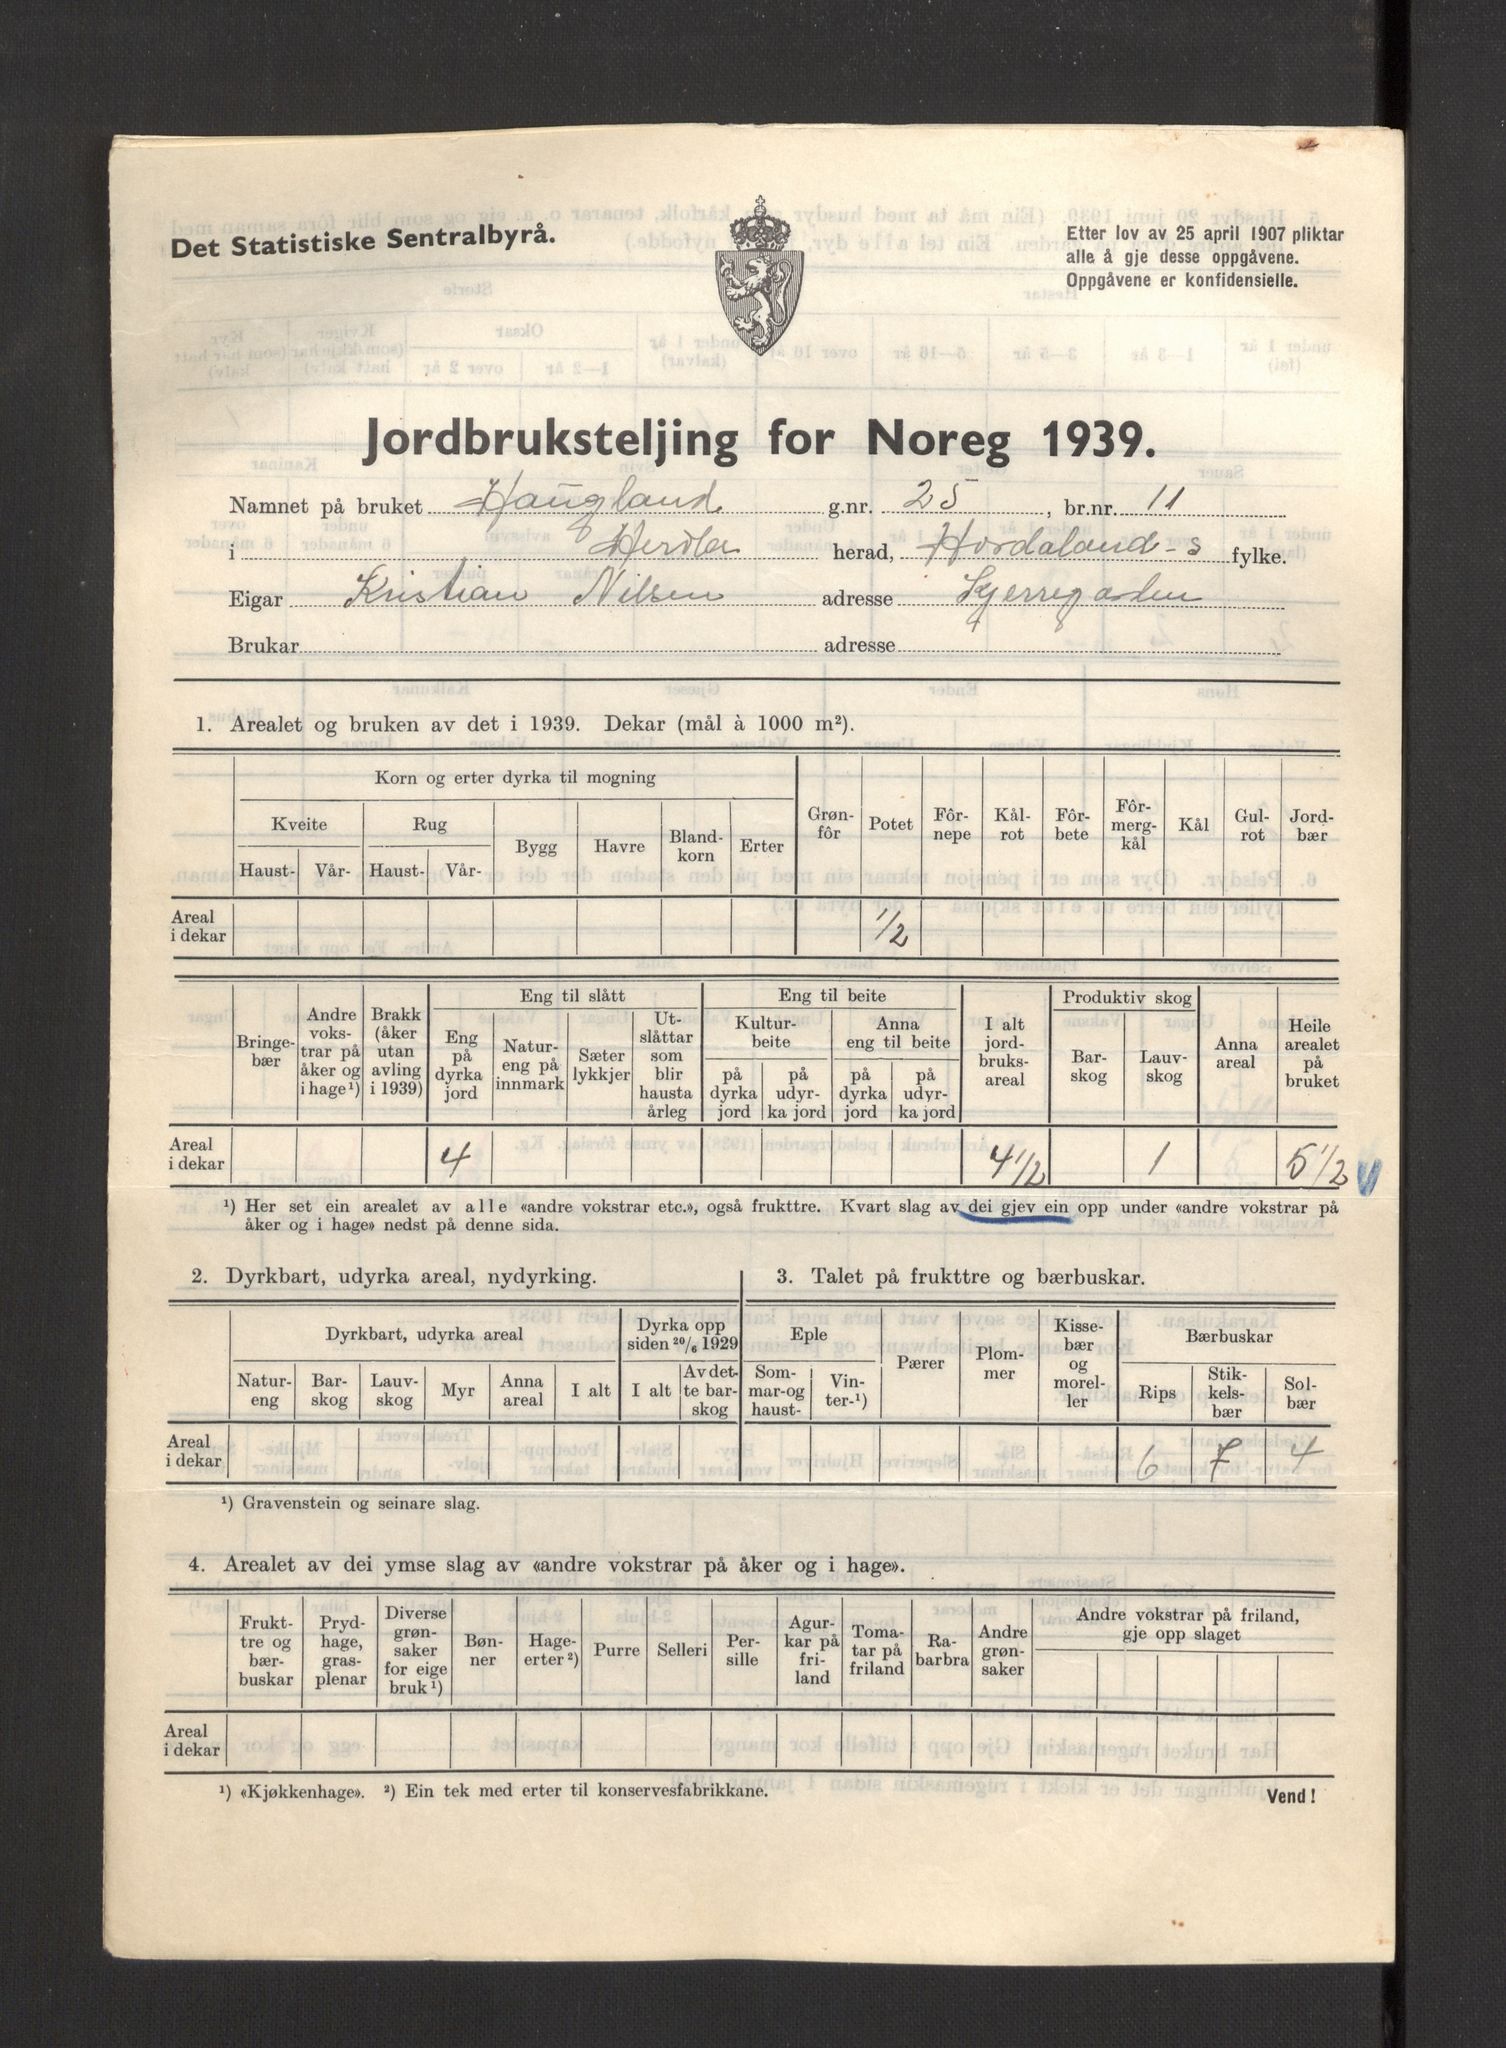 Det Statistiske Sentralbyrå.
Etter lov av 25 april 1907 pliktar
alle å gje desse oppgåvene.
Oppgåvene er konfidensielle.
Jordbruksteljing for Noreg 1939.
Namnet på bruket Haugland g.nr. 25, br.nr. 11
i Herdla herad, Hordaland-s fylke.
Eigar Kristian Nilsen adresse Skjerregarden
Brukar adresse
1. Arealet og bruken av det i 1939. Dekar (mål à 1000 m²).
Korn og erter dyrka til mogning
Kveite Rug Bygg Havre Blandkorn Erter Grønfôr Potet Fôrnepe Kålrot Fôrbete Fôrmergkål Kål Gulrot Jordbær
Haust- Vår- Haust- Vår-
Areal i dekar 1/2
Eng til slått Eng til beite Produktiv skog
Bringebær Andre vokstrar på åker og i hage¹) Brakk (åker utan avling i 1939) Eng på dyrka jord Natureng på innmark Sæter lykkjer Utslåttar som blir hausta årleg Kulturbeite Anna eng til beite I alt jordbruksareal Barskog Lauvskog Anna areal Heile arealet på bruket
på dyrka jord på udyrka jord på dyrka jord på udyrka jord
Areal i dekar 4 4 1/2 1 5 1/2
¹) Her set ein arealet av alle «andre vokstrar etc.», også frukttre. Kvart slag av dei gjev ein opp under «andre vokstrar på
åker og i hage» nedst på denne sida.
2. Dyrkbart, udyrka areal, nydyrking. 3. Talet på frukttre og bærbuskar.
Dyrkbart, udyrka areal Dyrka opp siden 20/6 1929 Eple Pærer Plommer Kissebær og moreller Bærbuskar
Natureng Barskog Lauvskog Myr Anna areal I alt I alt Av dette barskog Sommar- og haust- Vinter-¹) Rips Stikkelsbær Solbær
Areal i dekar 6 7 4
¹) Gravenstein og seinare slag.
4. Arealet av dei ymse slag av «andre vokstrar på åker og i hage».
Frukttre og bærbuskar Prydhage, grasplenar Diverse grønsaker for eige bruk¹) Bønner Hageerter²) Purre Selleri Persille Agurkar på friland Tomatar på friland Rabarbra Andre grønsaker Andre vokstrar på friland, gje opp slaget
Areal i dekar
¹) «Kjøkkenhage». ²) Ein tek med erter til konservesfabrikkane.
Vend!